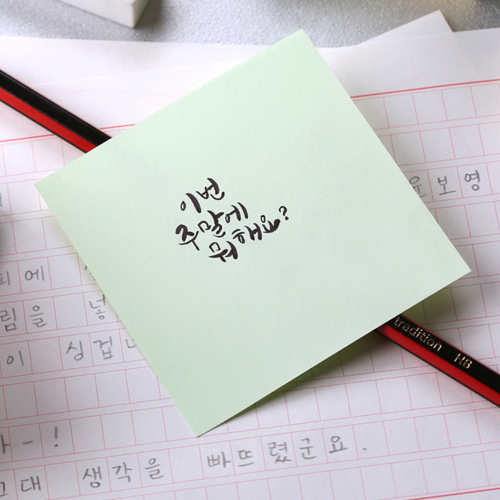 이번
주말에
뭐해요?
윤보영
피에
림을 넣
이 싱겁
tradition HB
아-!
그대 생각을 빠뜨렸군요.